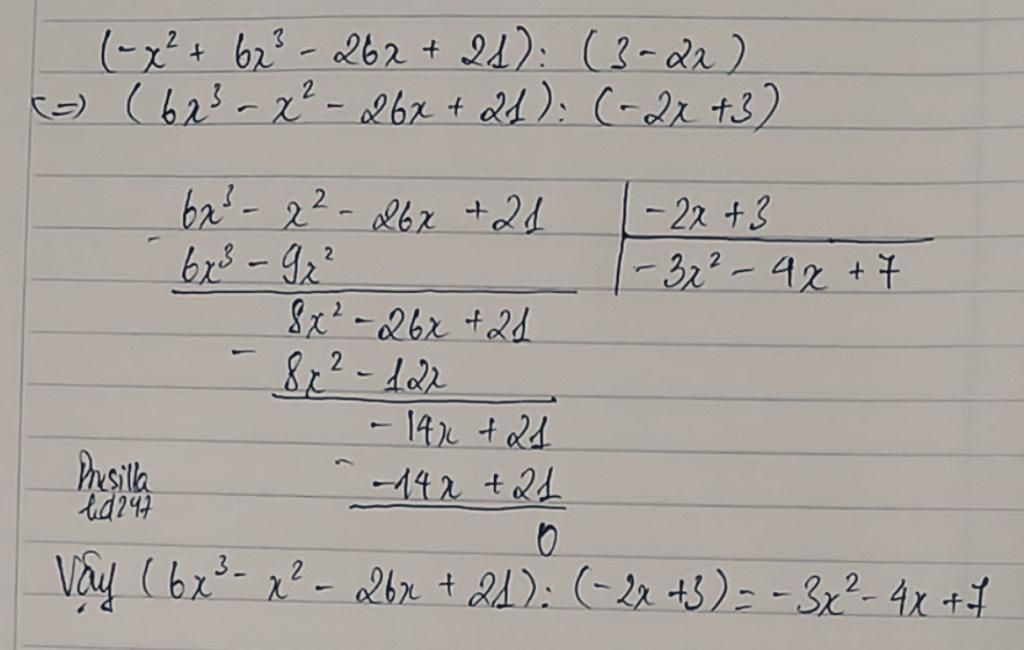 (-x² + 6x³ - 26x + 21) : (3 - 2x)
<=> (6x³ - x² - 26x + 21) : (-2x + 3)
6x³ - x² - 26x + 21 | -2x + 3
- 6x³ - 9x² | -3x² - 4x + 7
8x² - 26x + 21
- 8x² - 12x
- 14x + 21
- -14x + 21
0
Vậy (6x³ - x² - 26x + 21) : (-2x + 3) = -3x² - 4x + 7